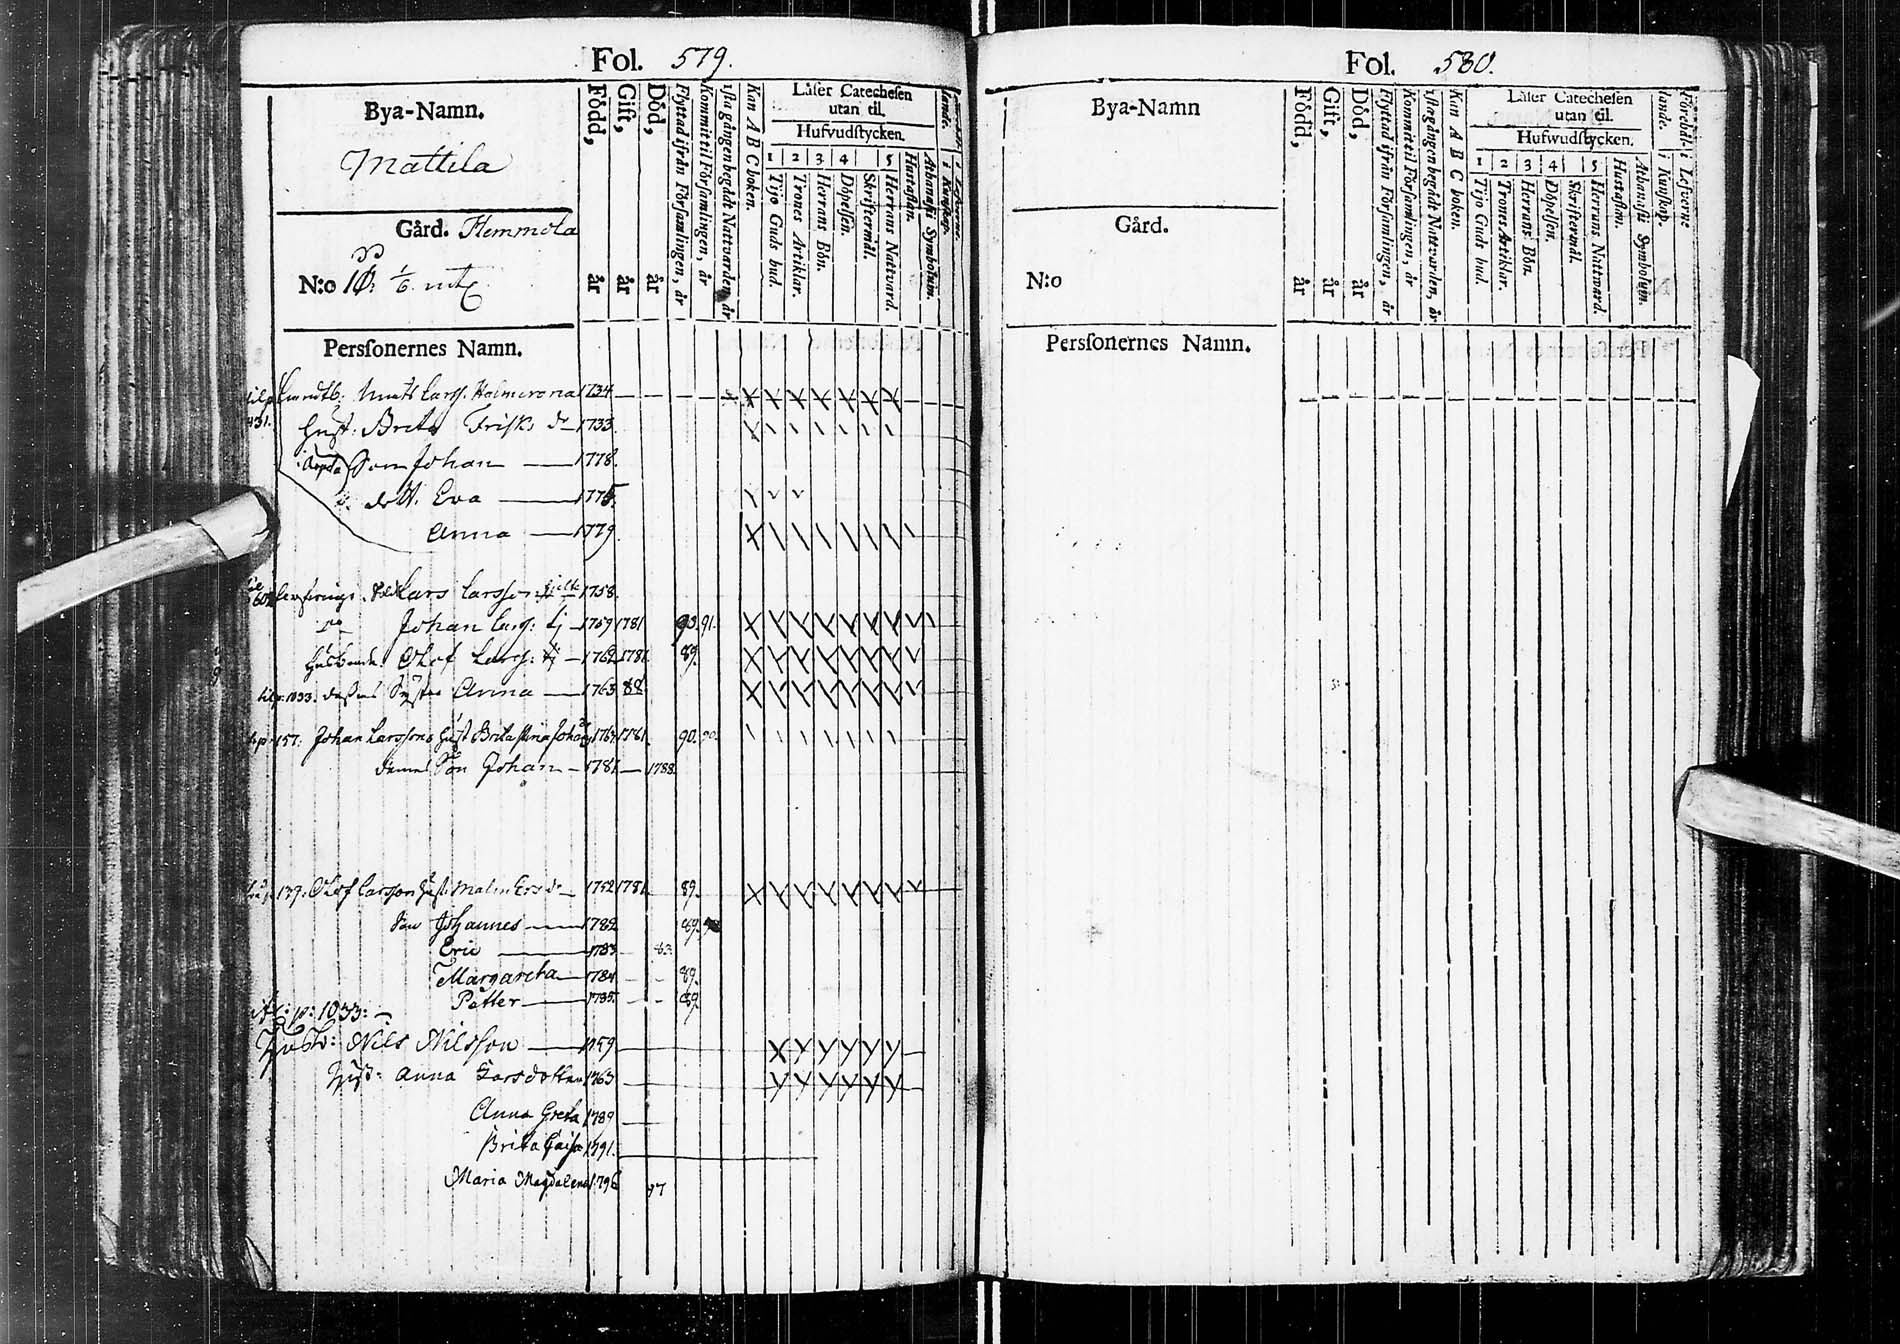 Fol. 579.
Bya-Namn.
Mattila
Gård. Hemmola
N:o 10: 1/6. mtl
Född, år
Gift, år
Död, år
Flyttad ifrån Församlingen, år
Kommit til Församlingen, år
1sta gången begådt Nattvarden, år
Kan A B C boken.
Låser Catechesen
utan til.
Hufvudstycken.
1 2 3 4 5
Tijo Guds bud.
Trones Artiklar.
Herrans Bön.
Döpelsen.
Skriftermål.
Herrans Nattvard.
Hustaflan.
Athanasii Symbolum.
Perssonernes Namn.
Mats Larss. 1734
Hust: Brita Frisk 1733.
Son Johan 1778.
dott. Eva 1775.
Anna 1779.
Lars Larsson 1758.
Johan Larss: 1759 1781 90. 91.
Olof Larss: 1762 1781. 89.
Syster Anna 1763 88.
157. Johan Larssons Hust Brita 1781. 90. 90.
Son Johan 1781 1788.
139. Olof Larson Hust. Malin Ersdr 1752 1781. 89.
Son Johannes 1782 89.
Eric 1783 83.
Margareta 1784 89.
Petter 1785. 89.
p: 1033:
Nils Nilsson 1759
Hust: Anna Larsdotter 1763
Anna Greta 1789
Brita Caisa 1791.
Maria Magdalena 1796 97
Fol. 580.
Bya-Namn
Gård.
N:o
Född, år
Gift, år
Död, år
Flyttad ifrån Församlingen, år
Kommit til Församlingen, år
1sta gången begådt Nattvarden, år
Kan A B C boken.
Låser Catechesen
utan til.
Hufwudstycken.
1 2 3 4 5
Tijo Guds bud.
Trones Artiklar.
Herrans Bön.
Döpelsen.
Skriftermål.
Herrans Nattward.
Hustaflan.
Athanasii Symbolum.
Perssonernes Namn.